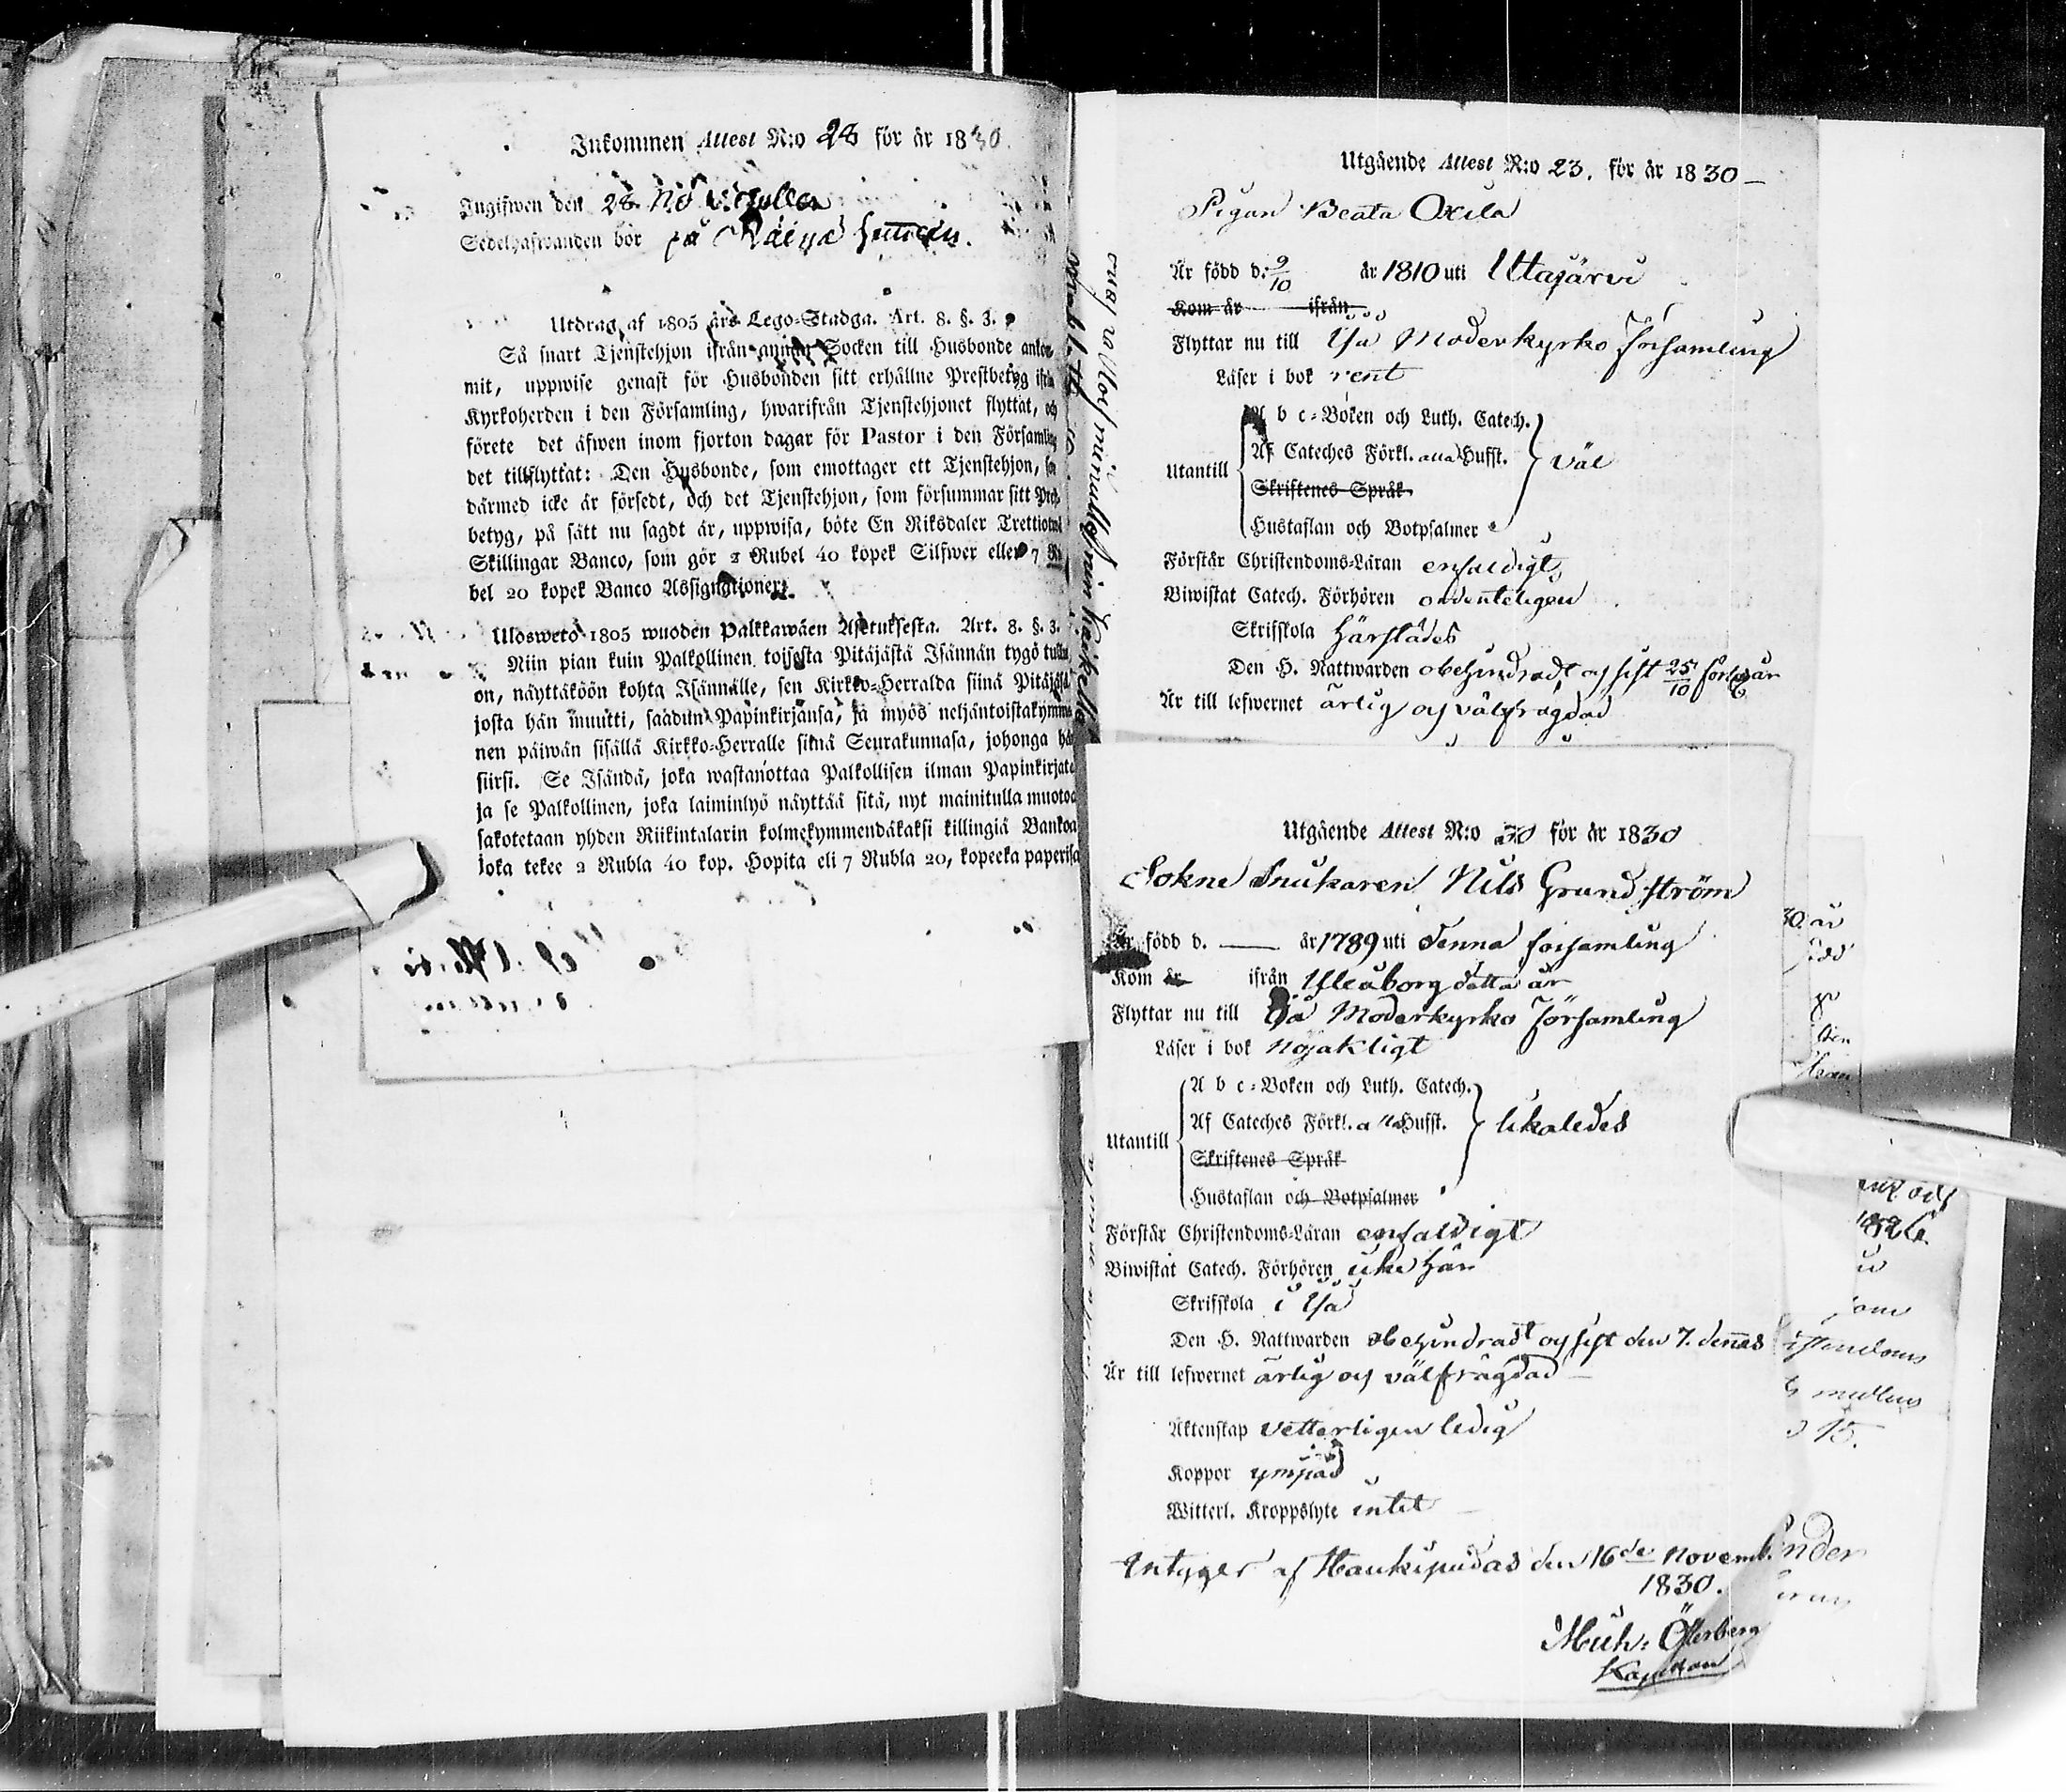 Inkommen Attest N:o 28 för år 1830.
Ingifwen den 28 No
Sedelhafwanden bor på
Utdrag af 1805 års Lego-Stadga. Art. 8. §. 3.
Så snart Tjenstehjon ifrån annan Socken till Husbonde ankom-
mit, uppwise genast för Husbonden sitt erhållne Prestbetyg ifrån
Kyrkoherden i den Församling, hwarifrån Tjenstehjonet flyttat, och
förete det äfwen inom fjorton dagar för Pastor i den Församling
det tillflyttat: Den Husbonde, som emottager ett Tjenstehjon, som
därmed icke är försedt, och det Tjenstehjon, som försummar sitt Prest-
betyg, på sätt nu sagdt är, uppwisa, böte En Riksdaler Trettiotwå
Skillingar Banco, som gör 2 Rubel 40 kopek Silfwer eller 7 Ru-
bel 20 kopek Banco Assignationer.
Ulosweto 1805 wuoden Palkkawäen Asetuksesta. Art. 8. §. 3.
Niin pian kuin Palkollinen toisesta Pitäjästä Isännän tygö tullut
on, näyttäköön kohta Isännälle, sen Kirkko-Herralda siinä Pitäjäsä
josta hän muutti, saadun Papinkirjansa, ja myös neljäntoistakymme-
nen päiwän sisällä Kirkko-Herralle siinä Seurakunnasa, johonga hän
siirsi. Se Isändä, joka wastanottaa Palkollisen ilman Papinkirjata
ja se Palkollinen, joka laiminlyö näyttää sitä, nyt mainitulla muotoa
sakotetaan yhden Riikintalarin kolmekymmendäkaksi killingiä Bankoa
joka tekee 2 Rubla 40 kop. Hopita eli 7 Rubla 20, kopeeka paperisa
Utgående Attest N:o 23. för år 1830
Pigan Beata Oxila
Är född d. 9/10 år 1810 uti Utajärvi
Kom år ifrån
Flyttar nu till Ijå Moderkyrko församling
Läser i bok rent
A b c-Boken och Luth. Catech.
Af Cateches Förkl. alla Hufst.
Utantill väl
Skriftenes Språk
Hustaflan och Botpsalmer
Förstår Christendoms-Läran enfaldigt
Biwistat Catech. Förhören ordenteligen
Skrifskola härstädes
Den H. Nattwarden obehindradt och sist 25/10 år
Är till lefwernet ärlig och välfrägdad
Utgående Attest N:o 30 för år 1830
Sokne Snickaren Nils Grundström
Är född d. — år 1789 uti denna församling
Kom år ifrån Uleåborg detta år
Flyttar nu till Ijå Moderkyrko församling
Läser i bok nöjakligt
A b c-Boken och Luth. Catech.
Af Cateches Förkl. alla Hufst.
Utantill likaledes
Skriftenes Språk
Hustaflan och Botpsalmer
Förstår Christendoms-Läran enfaldigt
Biwistat Catech. Förhören icke här
Skrifskola i Ijå
Den H. Nattwarden obehindradt och sist den 7. dennes
Är till lefwernet ärlig och välfrägdad
Äktenskap vetterligen ledig
Koppor ympad
Witterl. Kroppslyte intet
Intyger af Haukipudas den 16de Novemb.
1830.
Mich: Österberg
Kapellan